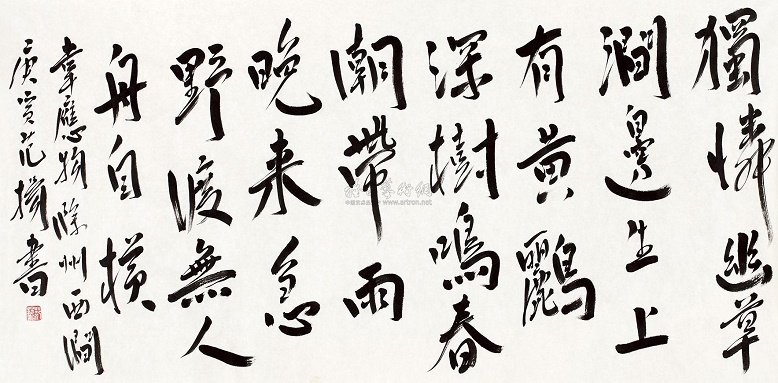 獨憐幽草
澗邊生上
有黃鸝
深樹鳴春
潮帶雨
晚来急
野渡無人
舟自橫
韋應物滁州西澗
庚寅范揚書
www.artron.net